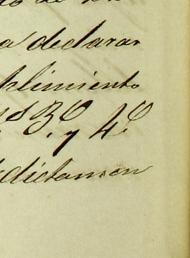 a declarar
plimiento
s 3º y 4º
dictamen